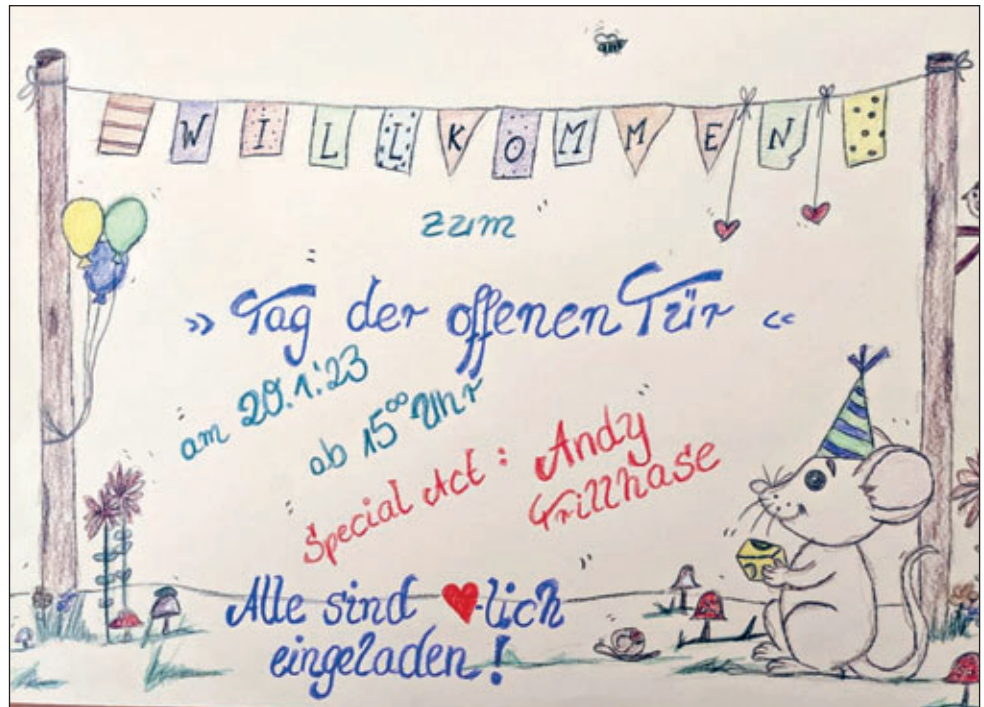 WILLKOMMEN
zum
» Tag der offenen Tür «
am 20.1.'23
ab 15⁰⁰ Uhr
Special Act: Andy
Trillhase
Alle sind ♥-lich
eingeladen!